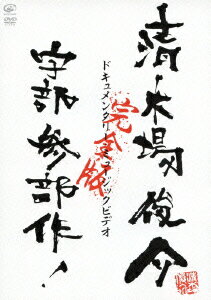 清木場俊介
ドキュメンタリー&ミュージックビデオ
完全版
宇部参部作!